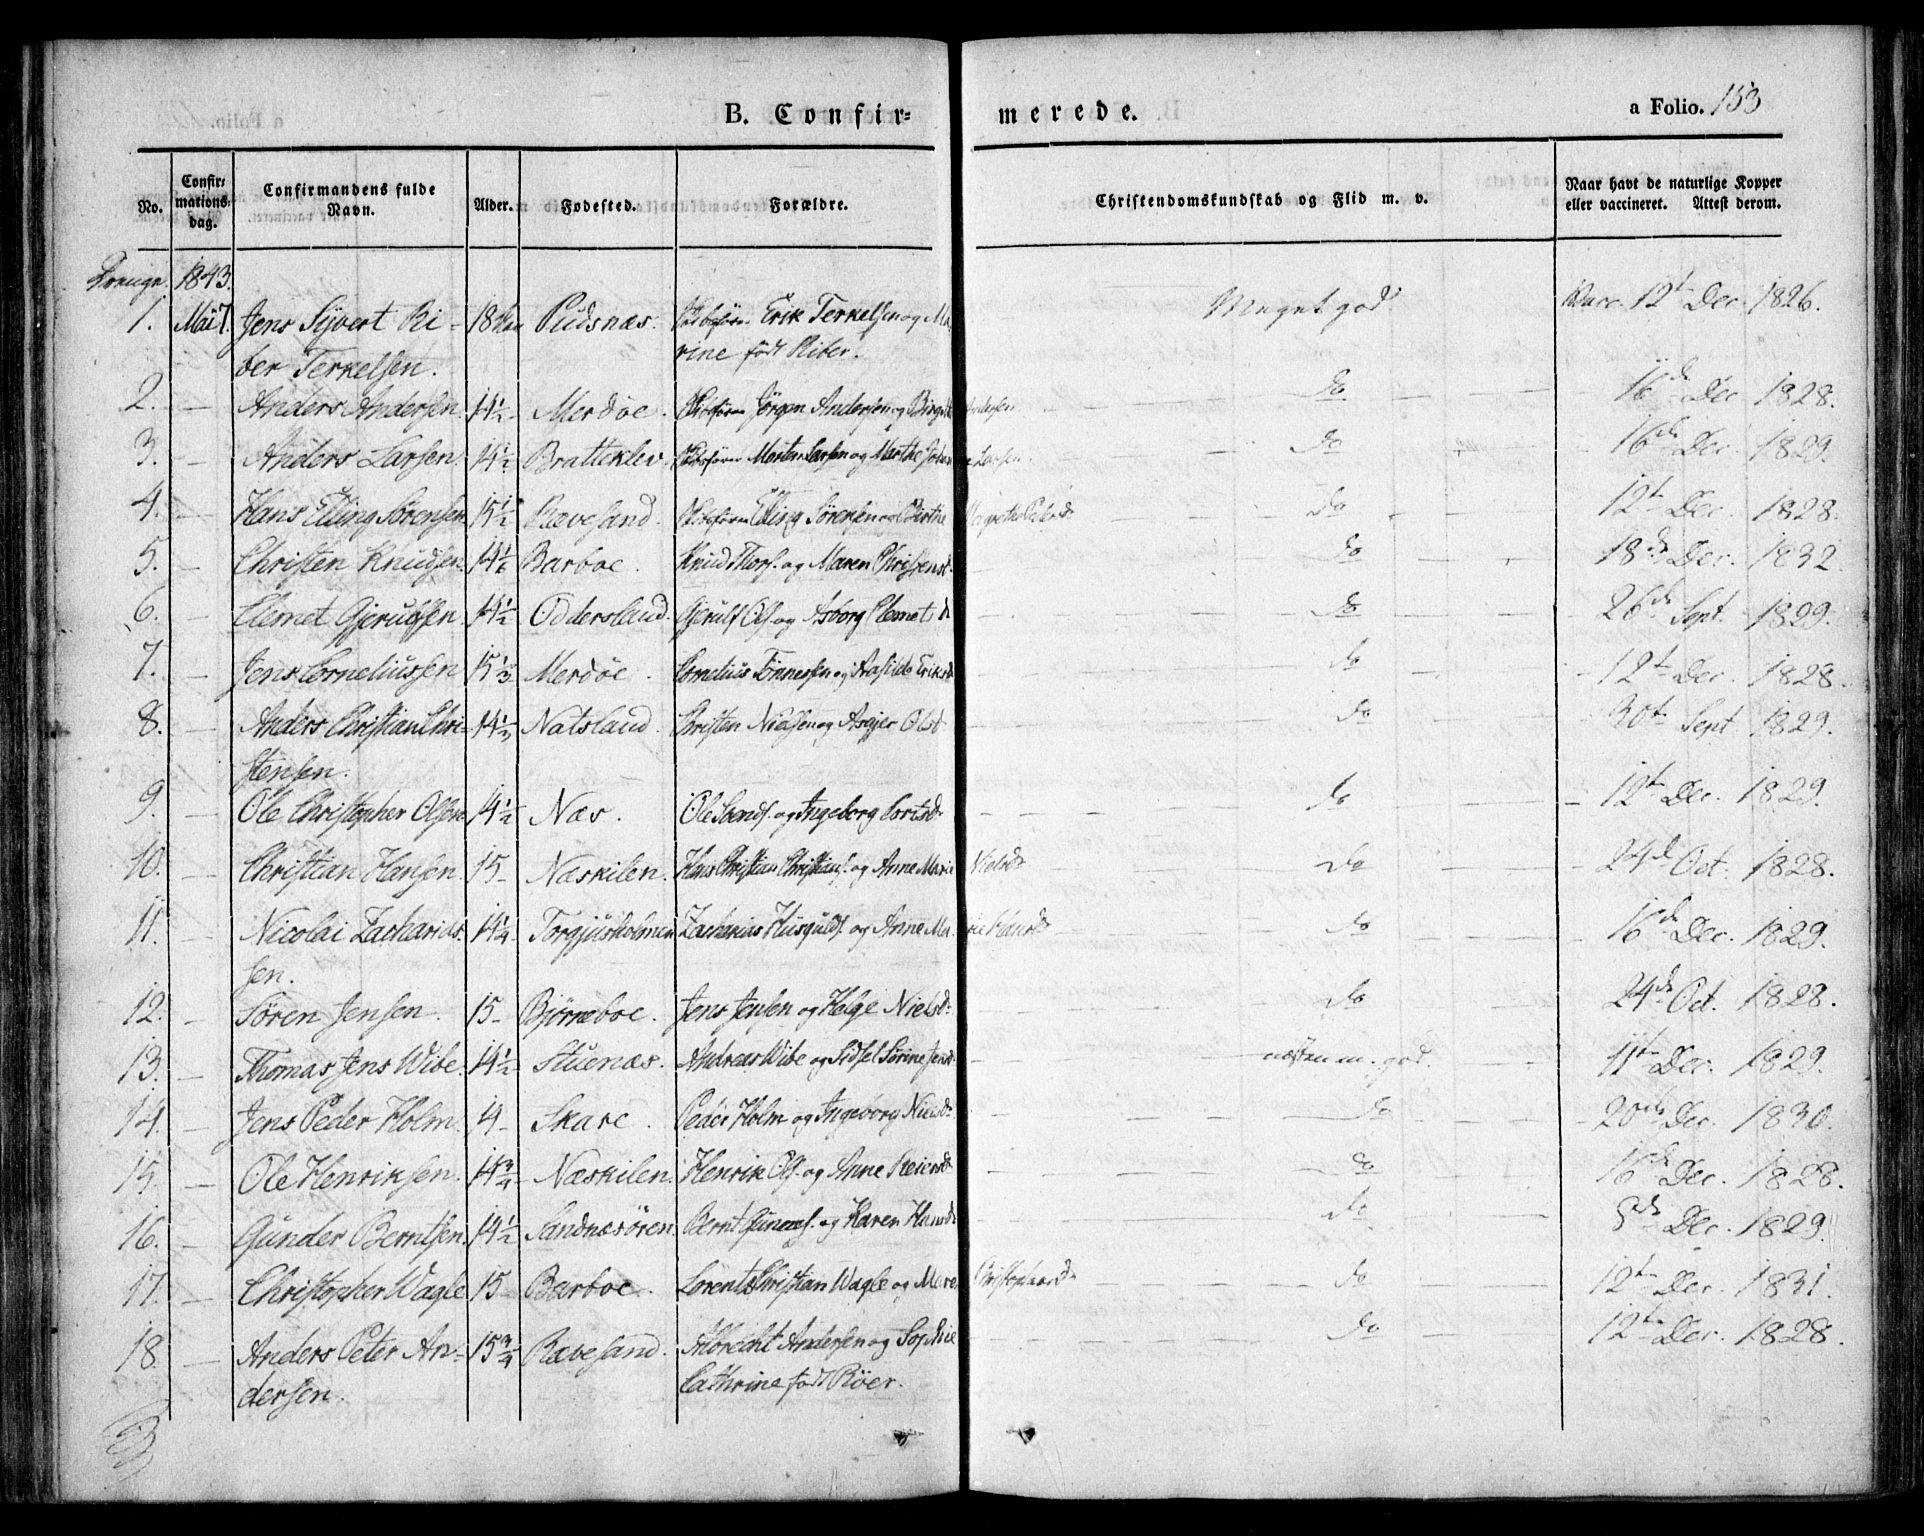 B. Confir= merede. a Folio. 153
No. Confir= mations= dag. Confirmandens fulde Navn. Alder. Fødested. Forældre. Christendomskundskab og Flid m. v. Naar havt de naturlige Kopper eller vaccineret. Attest derom.
Drenge. 1843.
1. Mai 7. Jens Syvert Ri- 18 Pudsnæs. Erik Terkelsen og Ma- Meget god Vacc. 12t Dec. 1826.
ber Terkelsen. rine født Riber.
2. — Anders Andersen 14½ Merdøe. Jørgen Andersen og Birgitte Andersen do 16de Dec 1828.
3. — Anders Larsen 14½ Bratteklev. Morten Larsen og Marthe Larsen do 16de Dec. 1829.
4. — Hans Elling Sørensen 15½ Rævesand. Elling Sørensen og Berthe Do 12t Dec. 1828.
5. — Christen Knudsen 14½ Barboe. Knud Thors. og Maren Christensd. do 18de Dec. 1832
6. — Clemet Gjerulfsen 14½ Oddersland. Gjerulf Ols. og Asborg Clemetsd. do 26de Sept. 1829.
7. — Jens Corneliussen 15⅓ Merdøe. Cornelius Tønnessen og Aasilde Eriksd. do 12t Dec. 1828.
8. — Anders Christian Chri- 14½ Natsland. Christen Nielsen og Asgjer Olsd. do 30te Sept 1829.
stensen.
9. — Ole Christopher Olsen 14½ Næs. Ole Svends. og Ingeborg Cortsd. do 12t Dec. 1829.
10. — Christian Hansen 15 — Næskilen. Hans Christian Christians. og Anne Marie Nielsd. Do 24d Oct. 1828.
11. — Nicolai Zacharias- 14¼ Torgjusholmen Zacharias Husgulds. og Anne Ma- rie Hansd. do 16de Dec. 1829.
sen.
12. — Søren Jensen. 15 — Bjørneboe. Jens Jensen og Helge Nielsd. do 24de Oct. 1828.
13. — Thomas Jens Wibe. 14½ Stuenæs. Andreas Wibe og Sidsel Sørine Jensd. næsten m. god. 11te Dec. 1829.
14. — Jens Peder Holm 14 — Skare. Peder Holm og Ingeborg Nielsd. do 20de Dec. 1830.
15. — Ole Henriksen. 14¾ Næskilen. Henrik Ols. og Anne Reiersd. do 16de Dec. 1828.
16. — Gunder Berntsen. 14½ Sandnæsøren. Bernt Gunders. og Karen Hansd. do 8de Dec. 1829.
17. — Christopher Wagle 15 — Barboe. Lorents Christian Wagle og Maren Christophersd. do 12te Dec. 1831.
18. — Anders Peter An- 15¾ Rævesand. Albrecht Andersen og Sophie do 12te Dec. 1828.
dersen. Cathrine født Röer.